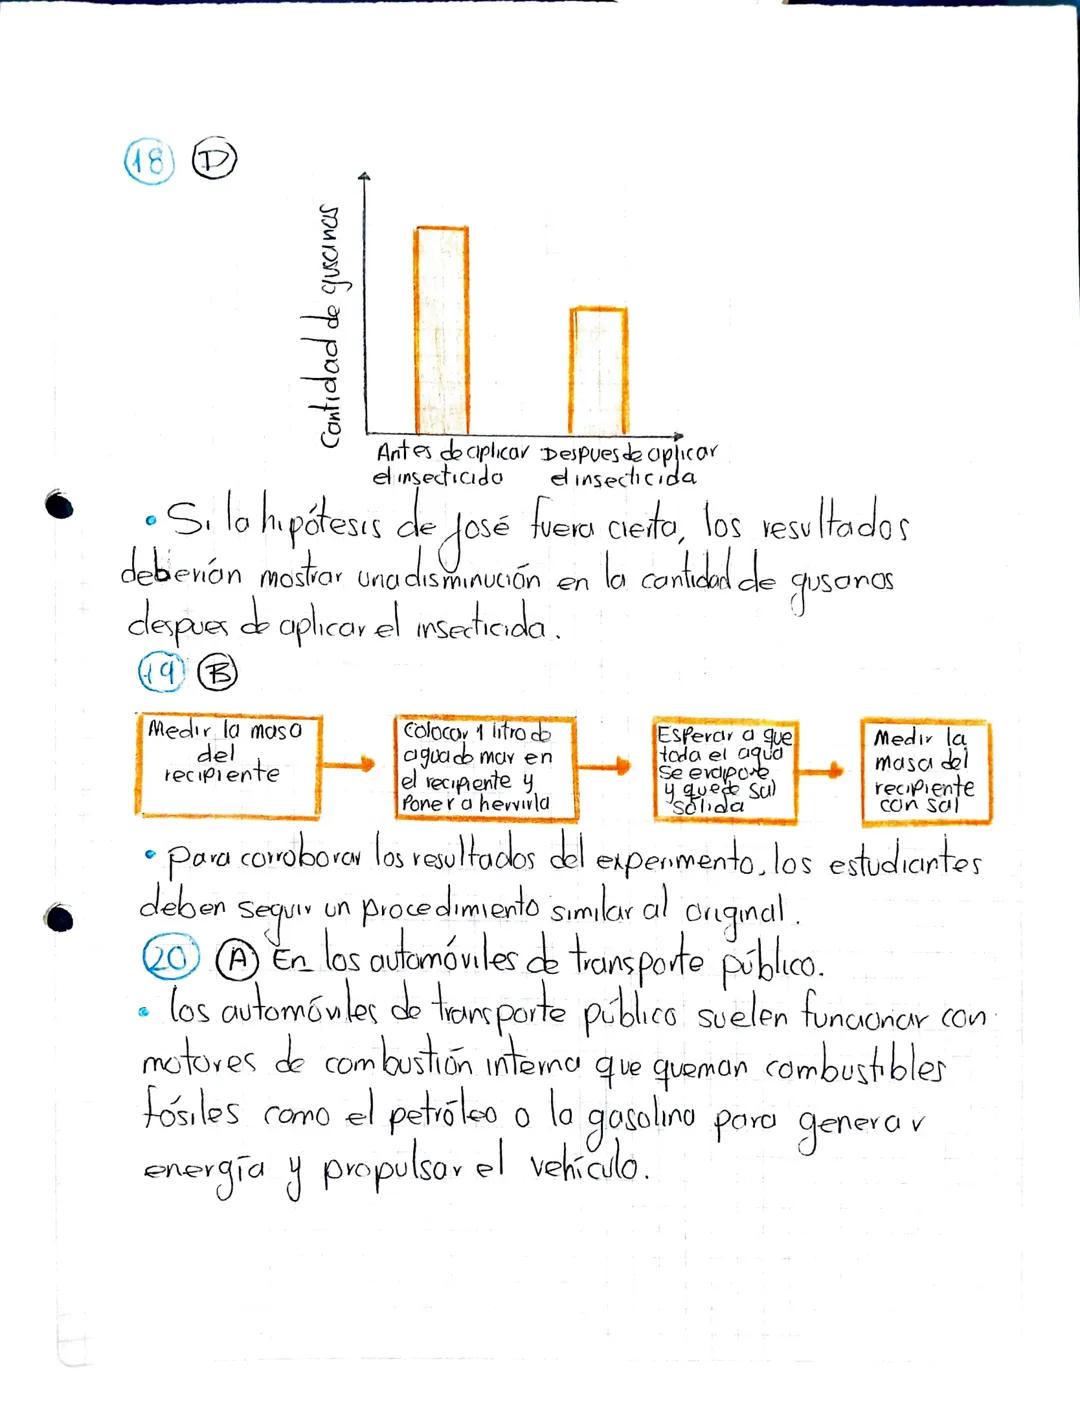 18 D
Cantidad de gusanos
Antes de aplicar el insecticida
Despues de aplicar el insecticida
• Si la hipótesis de José fuera cierta, los resultados
deberían mostrar una disminución en la cantidad de gusanos
despues de aplicar el insecticida.
19 B
Medir la masa
del
recipiente
Colocar 1 litro de
agua de mar en
el recipiente y
Poner a hervirla
Esperar a que
toda el agua
se evapore
y quede sal
sólida
Medir la
masa del
recipiente
con sal
• para corroborar los resultados del experimento, los estudiantes
deben seguir un procedimiento similar al original.
20 A En los automóviles de transporte público.
• los automóviles de transporte público suelen funcionar con
motores de combustión interna que queman combustibles
fósiles como el petróleo o la gasolina para generar
energía y propulsar el vehículo.